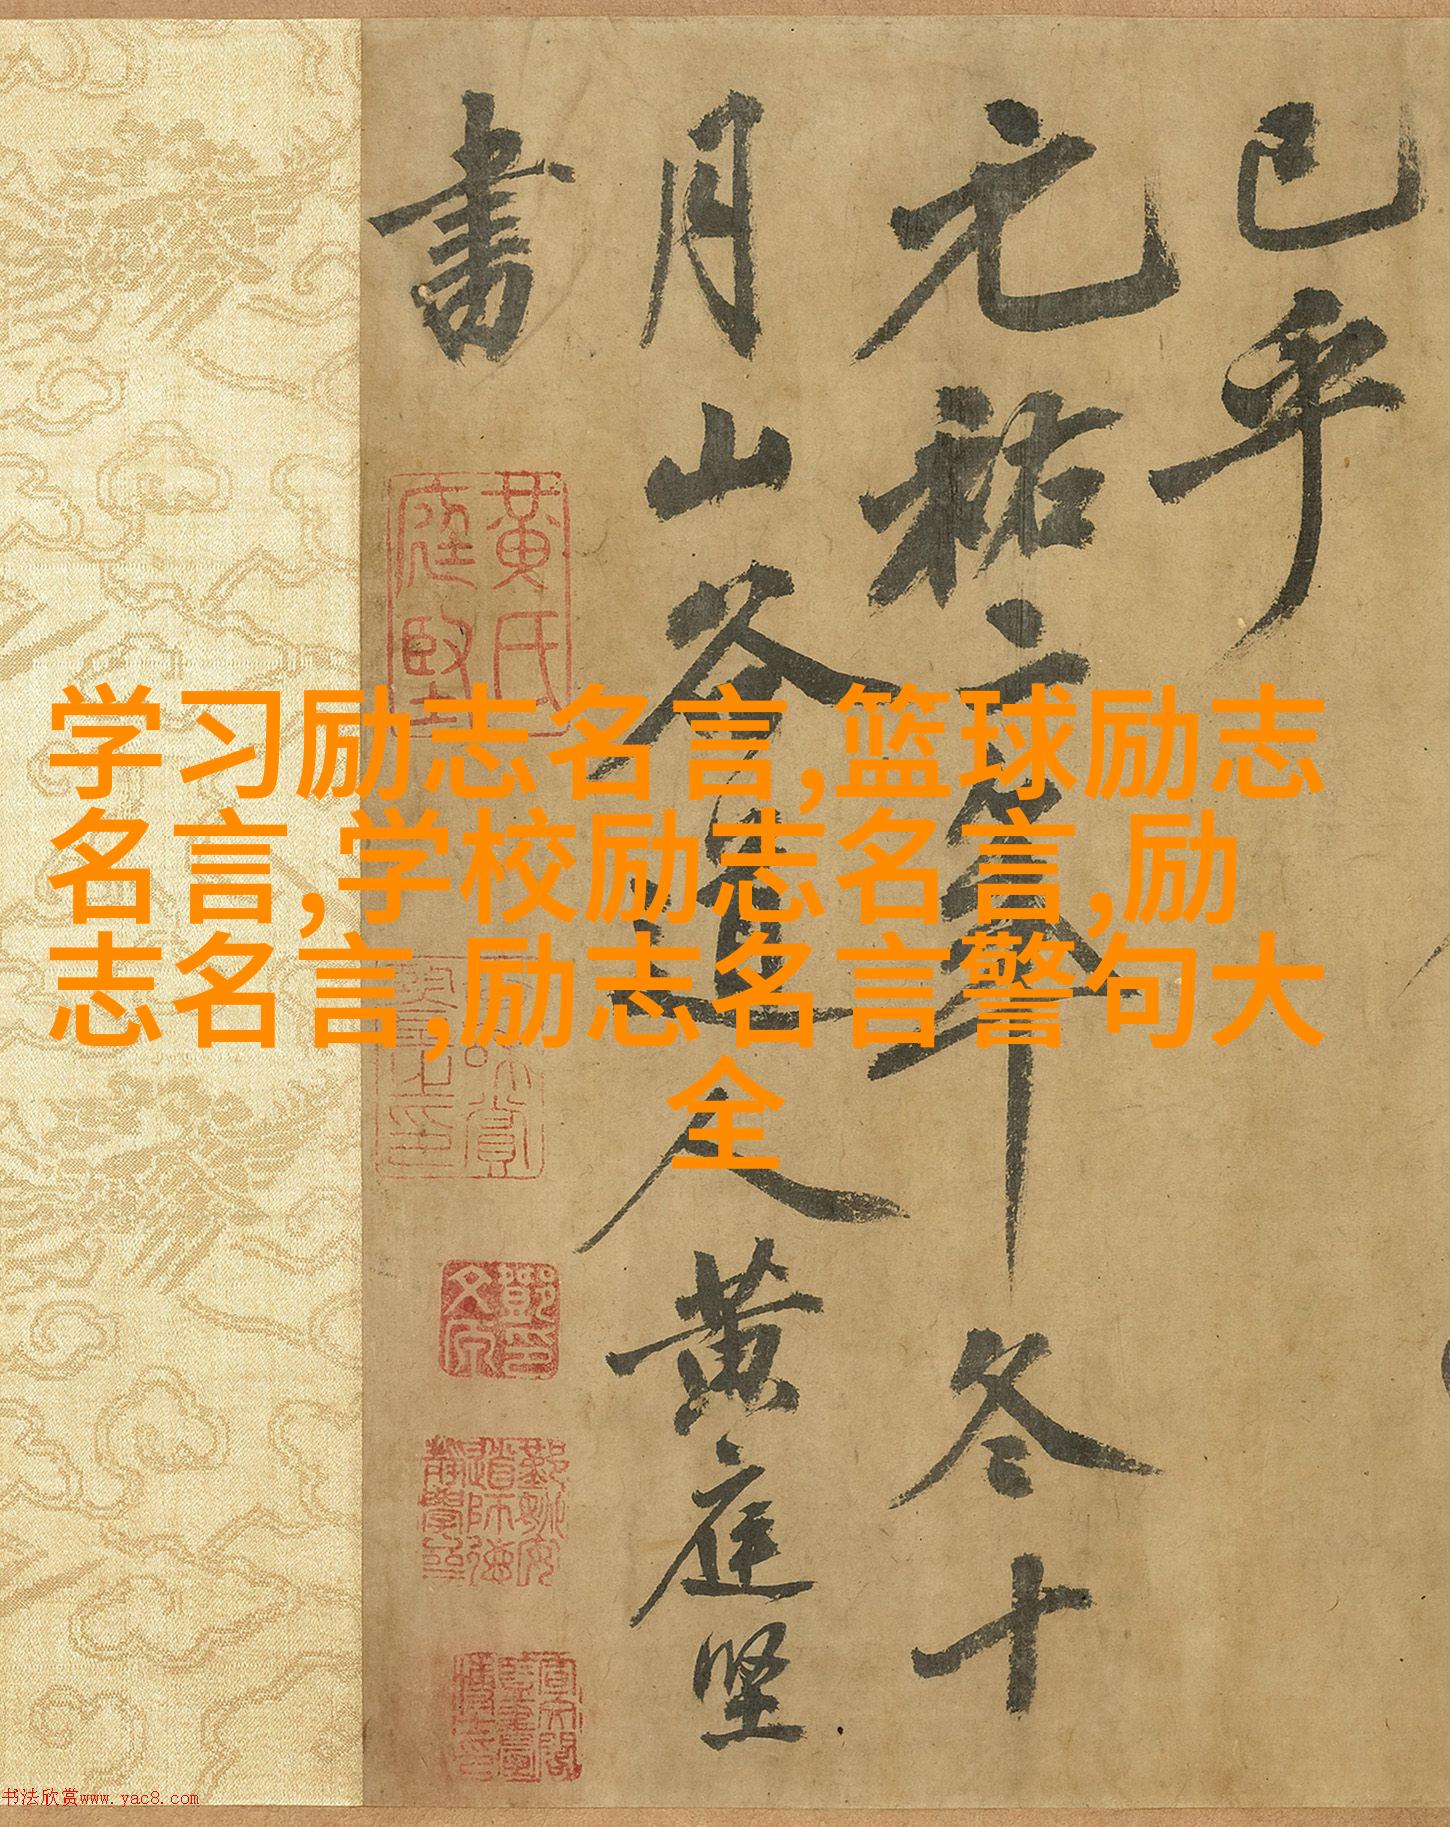 已乎
元祐年冬十
月山谷道人黄庭坚
書
黄氏
庭堅
学习励志名言,篮球励志
名言,学校励志名言,励
志名言,励志名言警句大
全
书法欣赏www.yac8.com